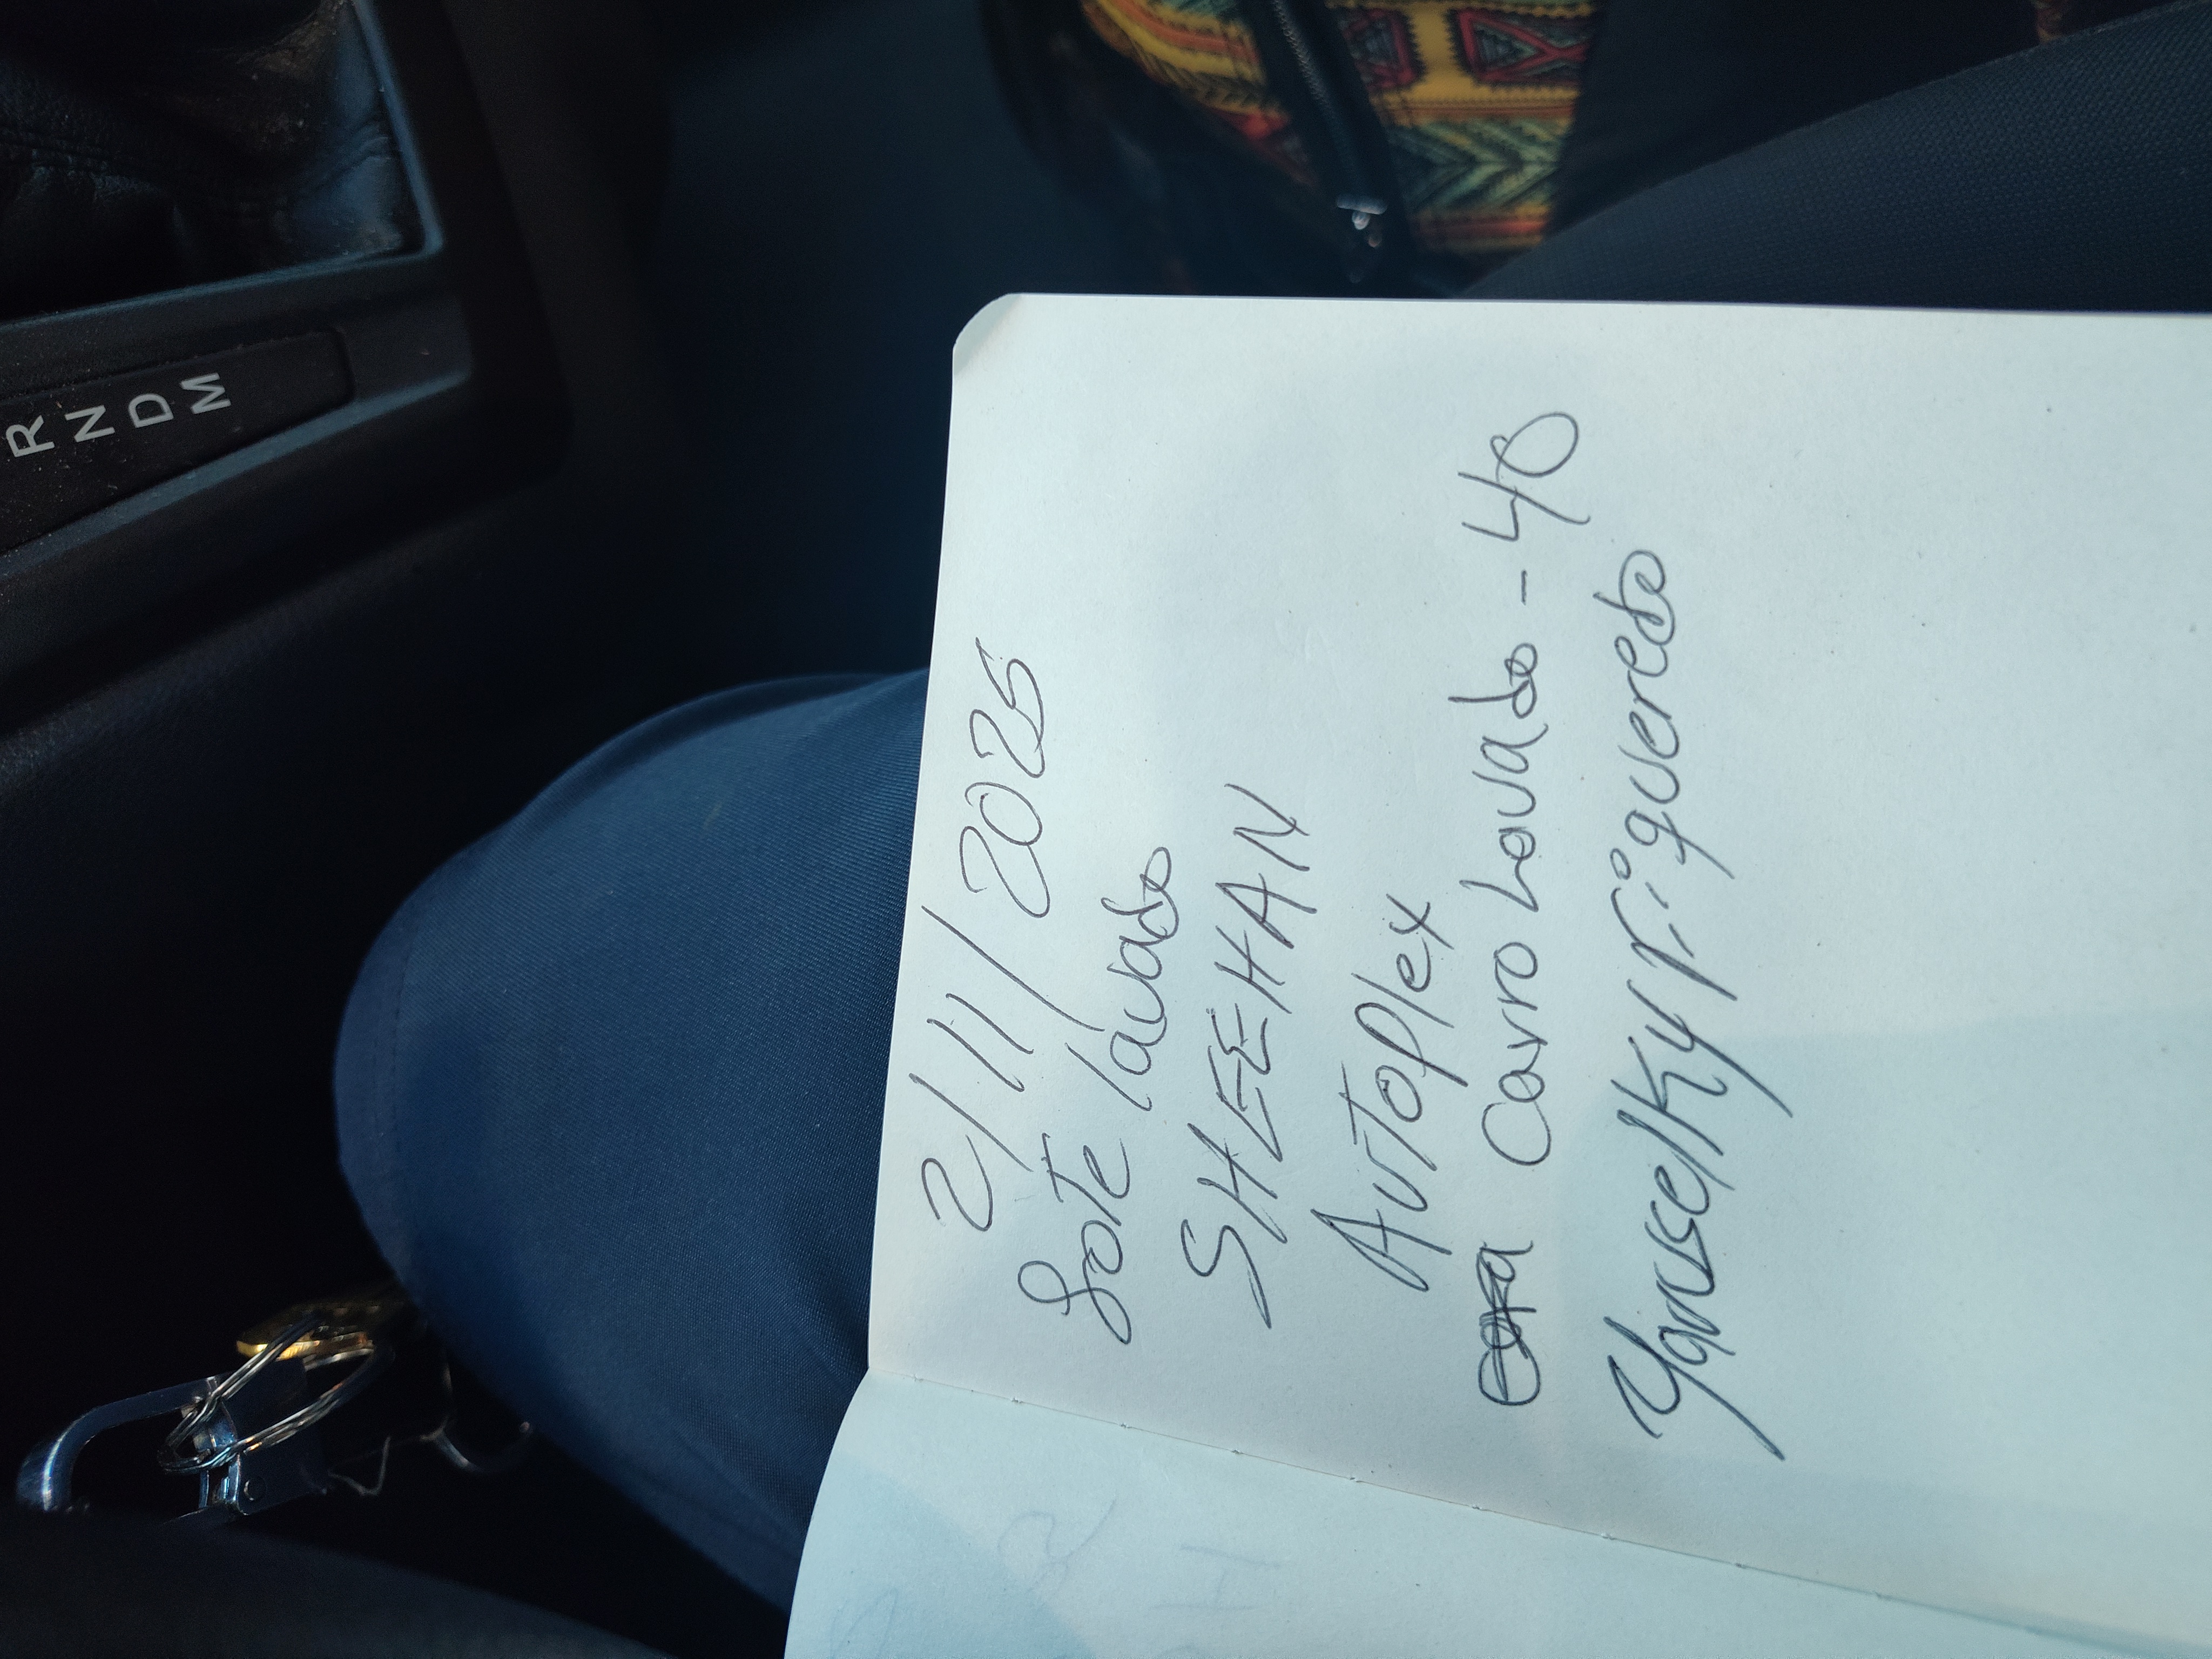 2/11/2025
Lote lavado
SHEEHAN
AuToplex
Carro Lavado - 40
Yanselky Figueredo
R
N
D
M